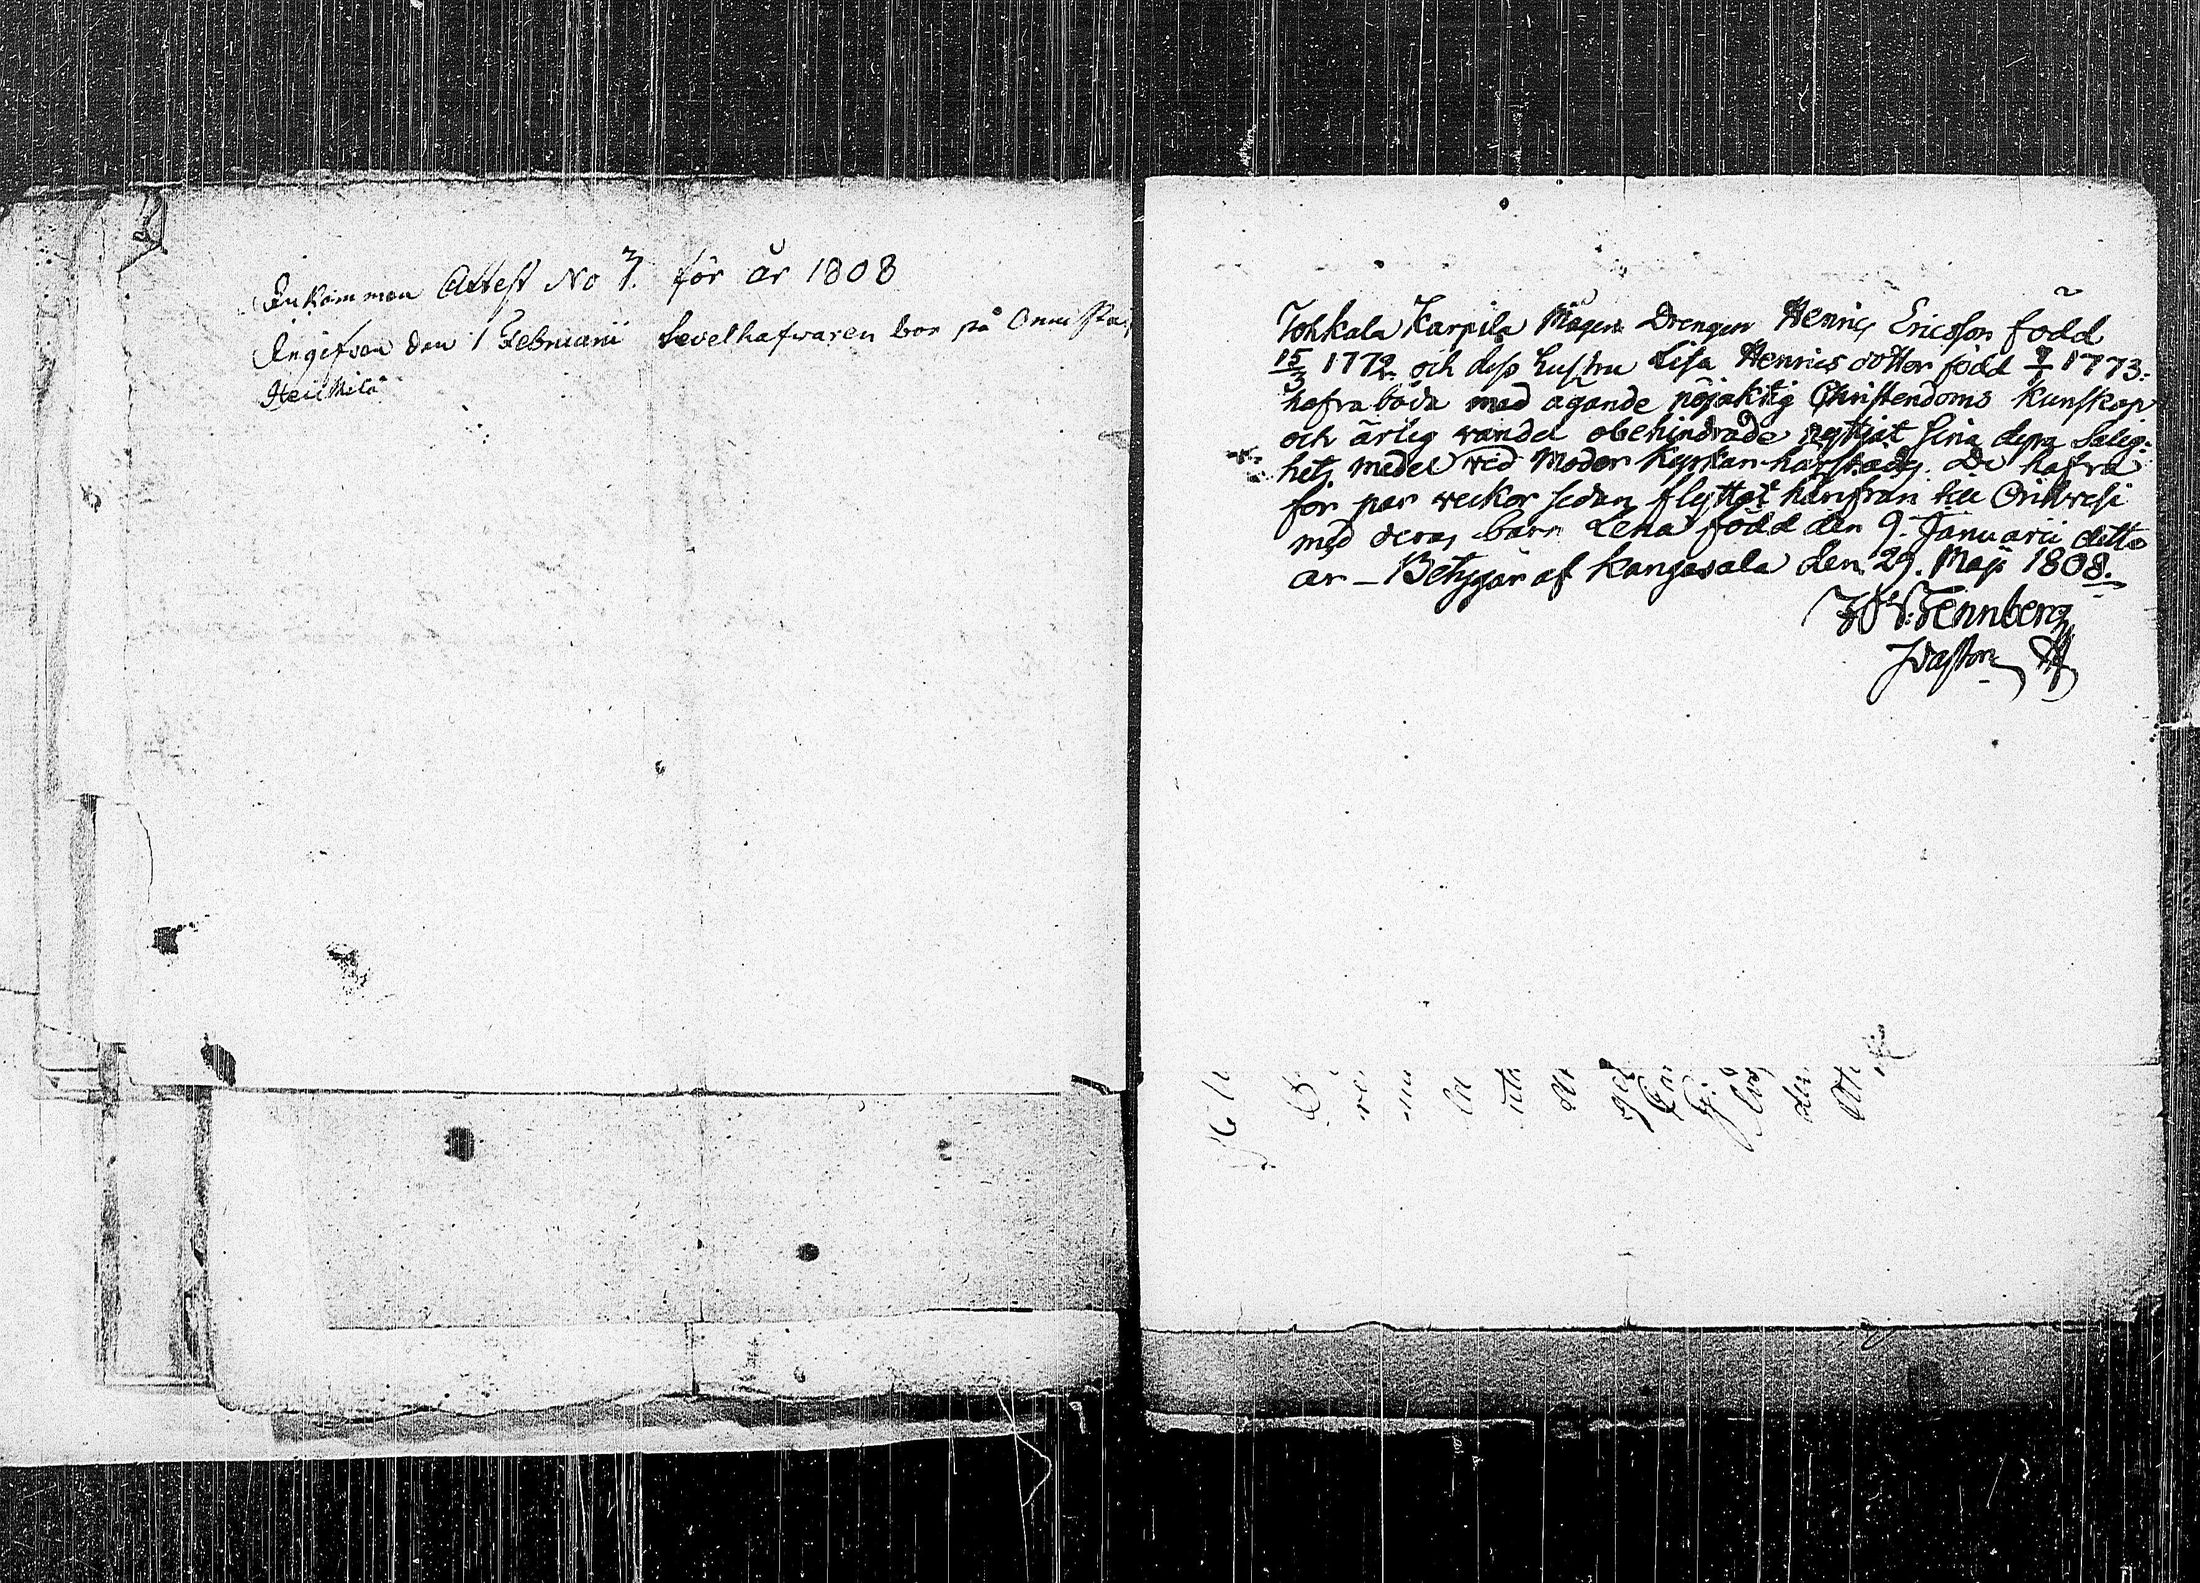 Inkommen Attest No 7. för år 1808
Ingifven den 1 Februarii bor på
Heikkilä
Tohkala Karpila Mågen Drengen Henric Ericsson född
15/3 1772 och dess hustru Lisa Henricsdotter född 9/1 1773.
hafva båda med ägande nöjaktig Christendoms kunskap
och ärlig vandel obehindrade nyttjat sina dyra Salig-
hets medel wid Moder Kyrkan härstädes. De hafva
för par veckor sedan flyttat härifrån till Orihvesi
med deras barn Lena född den 9. Januarii detta
år – Betygar af Kangasala den 29. Maji 1808.
Tennberg
Pastor